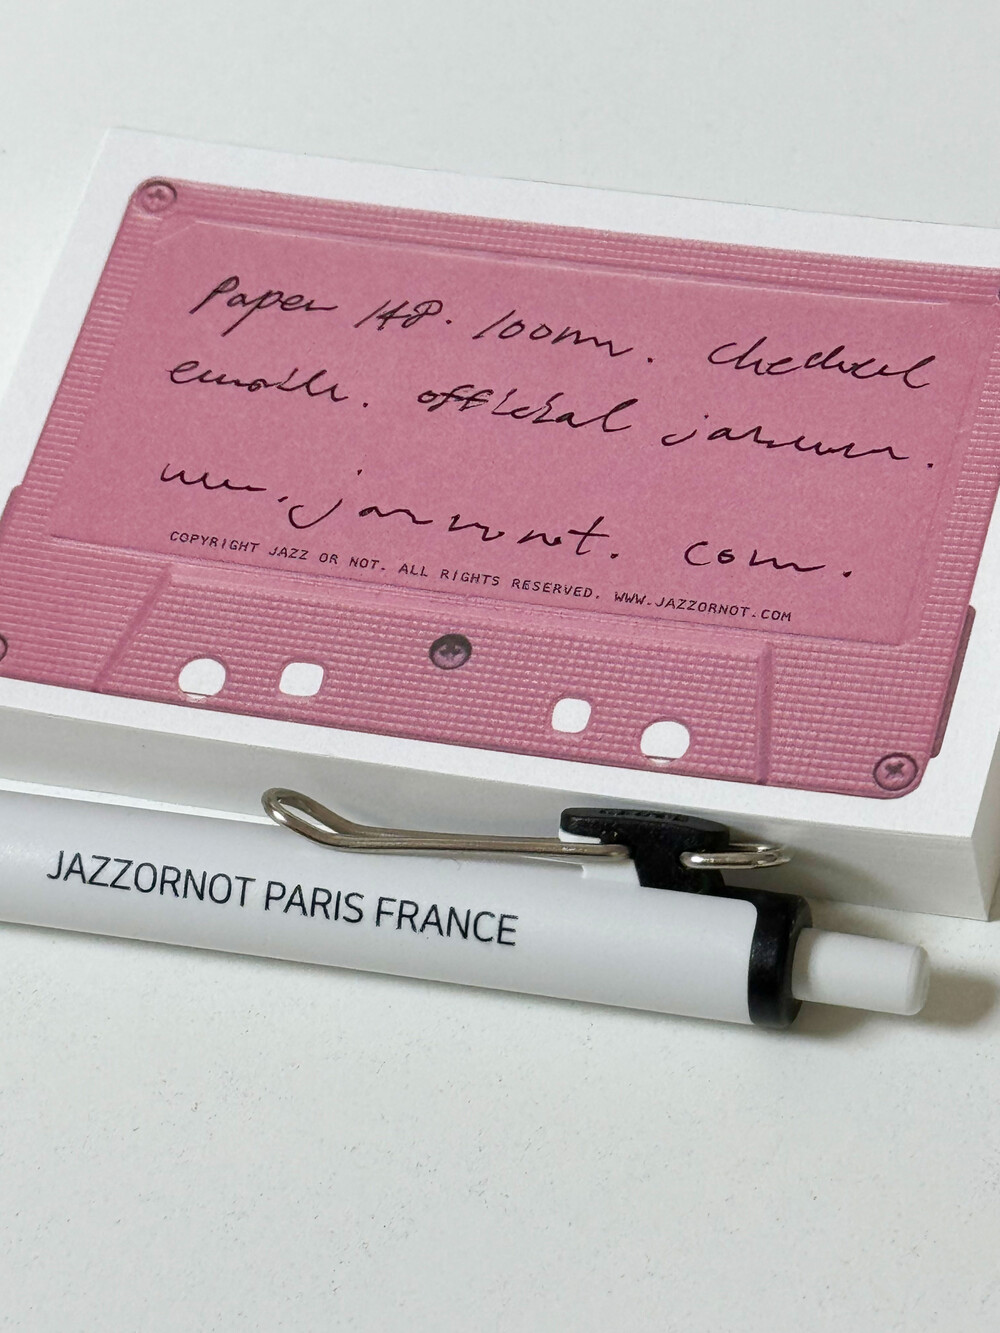 Paper 148. 100mm. checked
email. official
www. jazzornot. com.
COPYRIGHT JAZZ OR NOT. ALL RIGHTS RESERVED. WWW.JAZZORNOT.COM
JAZZORNOT PARIS FRANCE